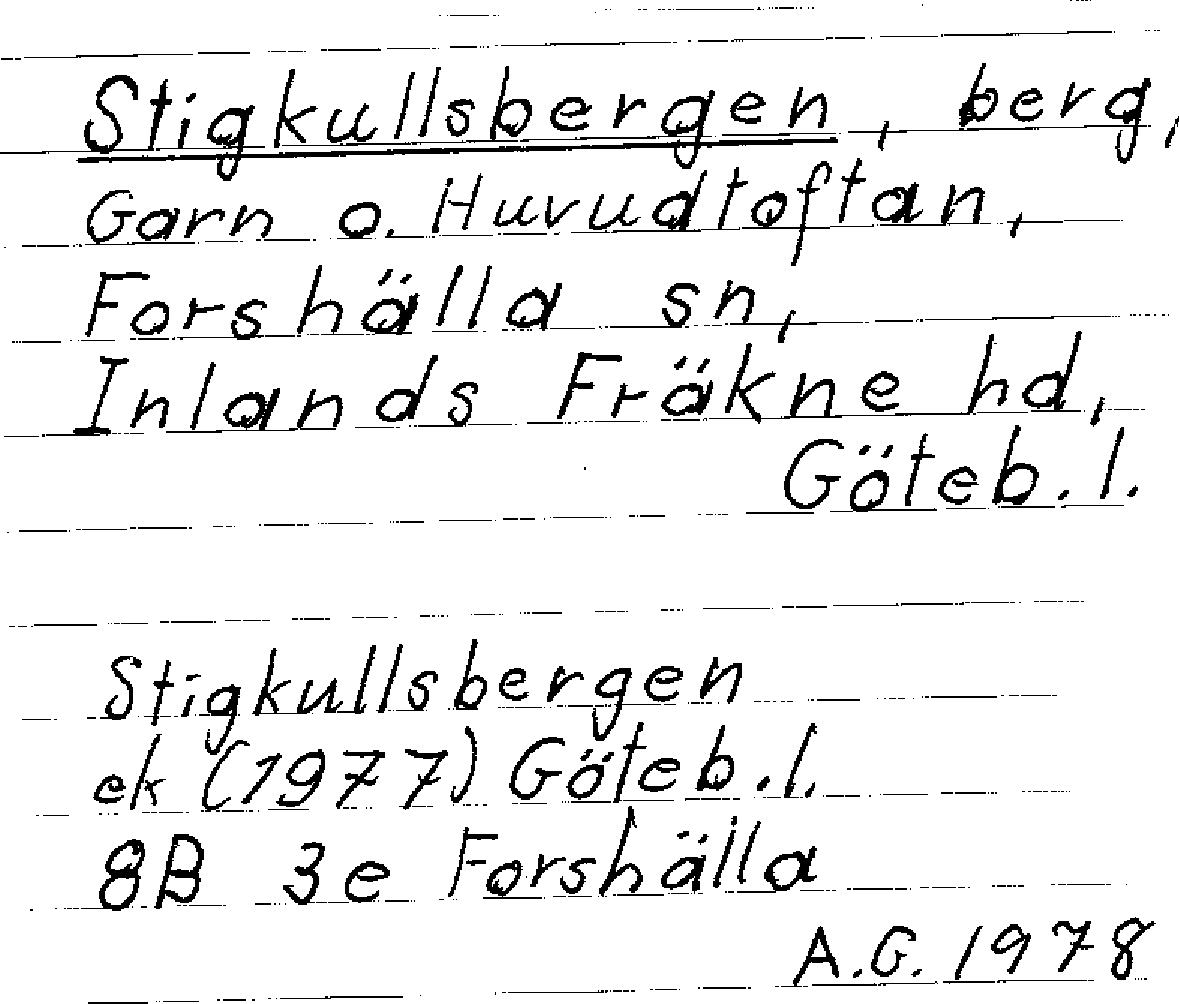 Stigkullsbergen, berg,
Garn o. Huvudtoftan,
Forshälla sn,
Inlands Fräkne hd,
Göteb. l.
Stigkullsbergen
ek (1977) Göteb. l.
8B 3e Forshälla
A.G. 1978